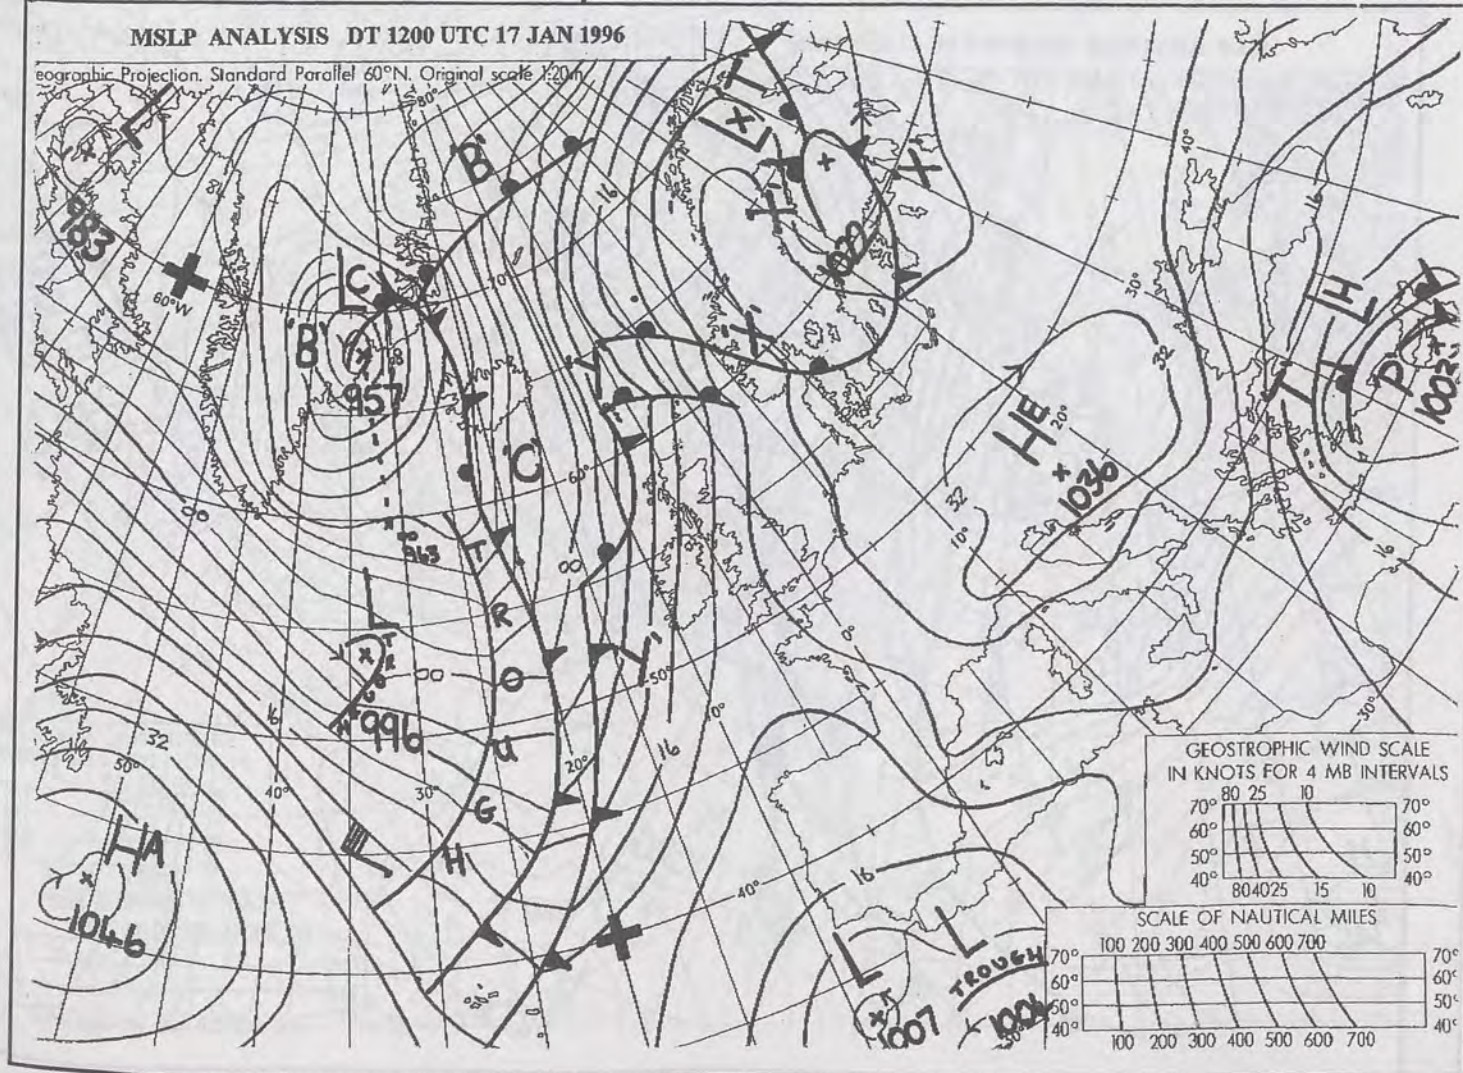 MSLP ANALYSIS DT 1200 UTC 17 JAN 1996
eographic Projection. Standard Parallel 60°N. Original scale 1:20m
80°
L
983
60°W
'B'
16
10
T
X
'X'
'X'
1022
'X'
L
'C'
'B'
957
'C'
60°
00
963
L
TROUGH
996
00
00
TROUGH
'Y'
50°
10°
16
20°
30°
40°
16
32
50°
HA
1046
L
40°
40°
30°
20°
10°
0°
32
32
HE
1036
16
T
H
L
H
P'
1002
16
30°
16
L
1007
L
TROUGH
1006
GEOSTROPHIC WIND SCALE
IN KNOTS FOR 4 MB INTERVALS
80 25 10
70° 70°
60° 60°
50° 50°
40° 40°
80 40 25 15 10
SCALE OF NAUTICAL MILES
100 200 300 400 500 600 700
70° 70°
60° 60°
50° 50°
40° 40°
100 200 300 400 500 600 700